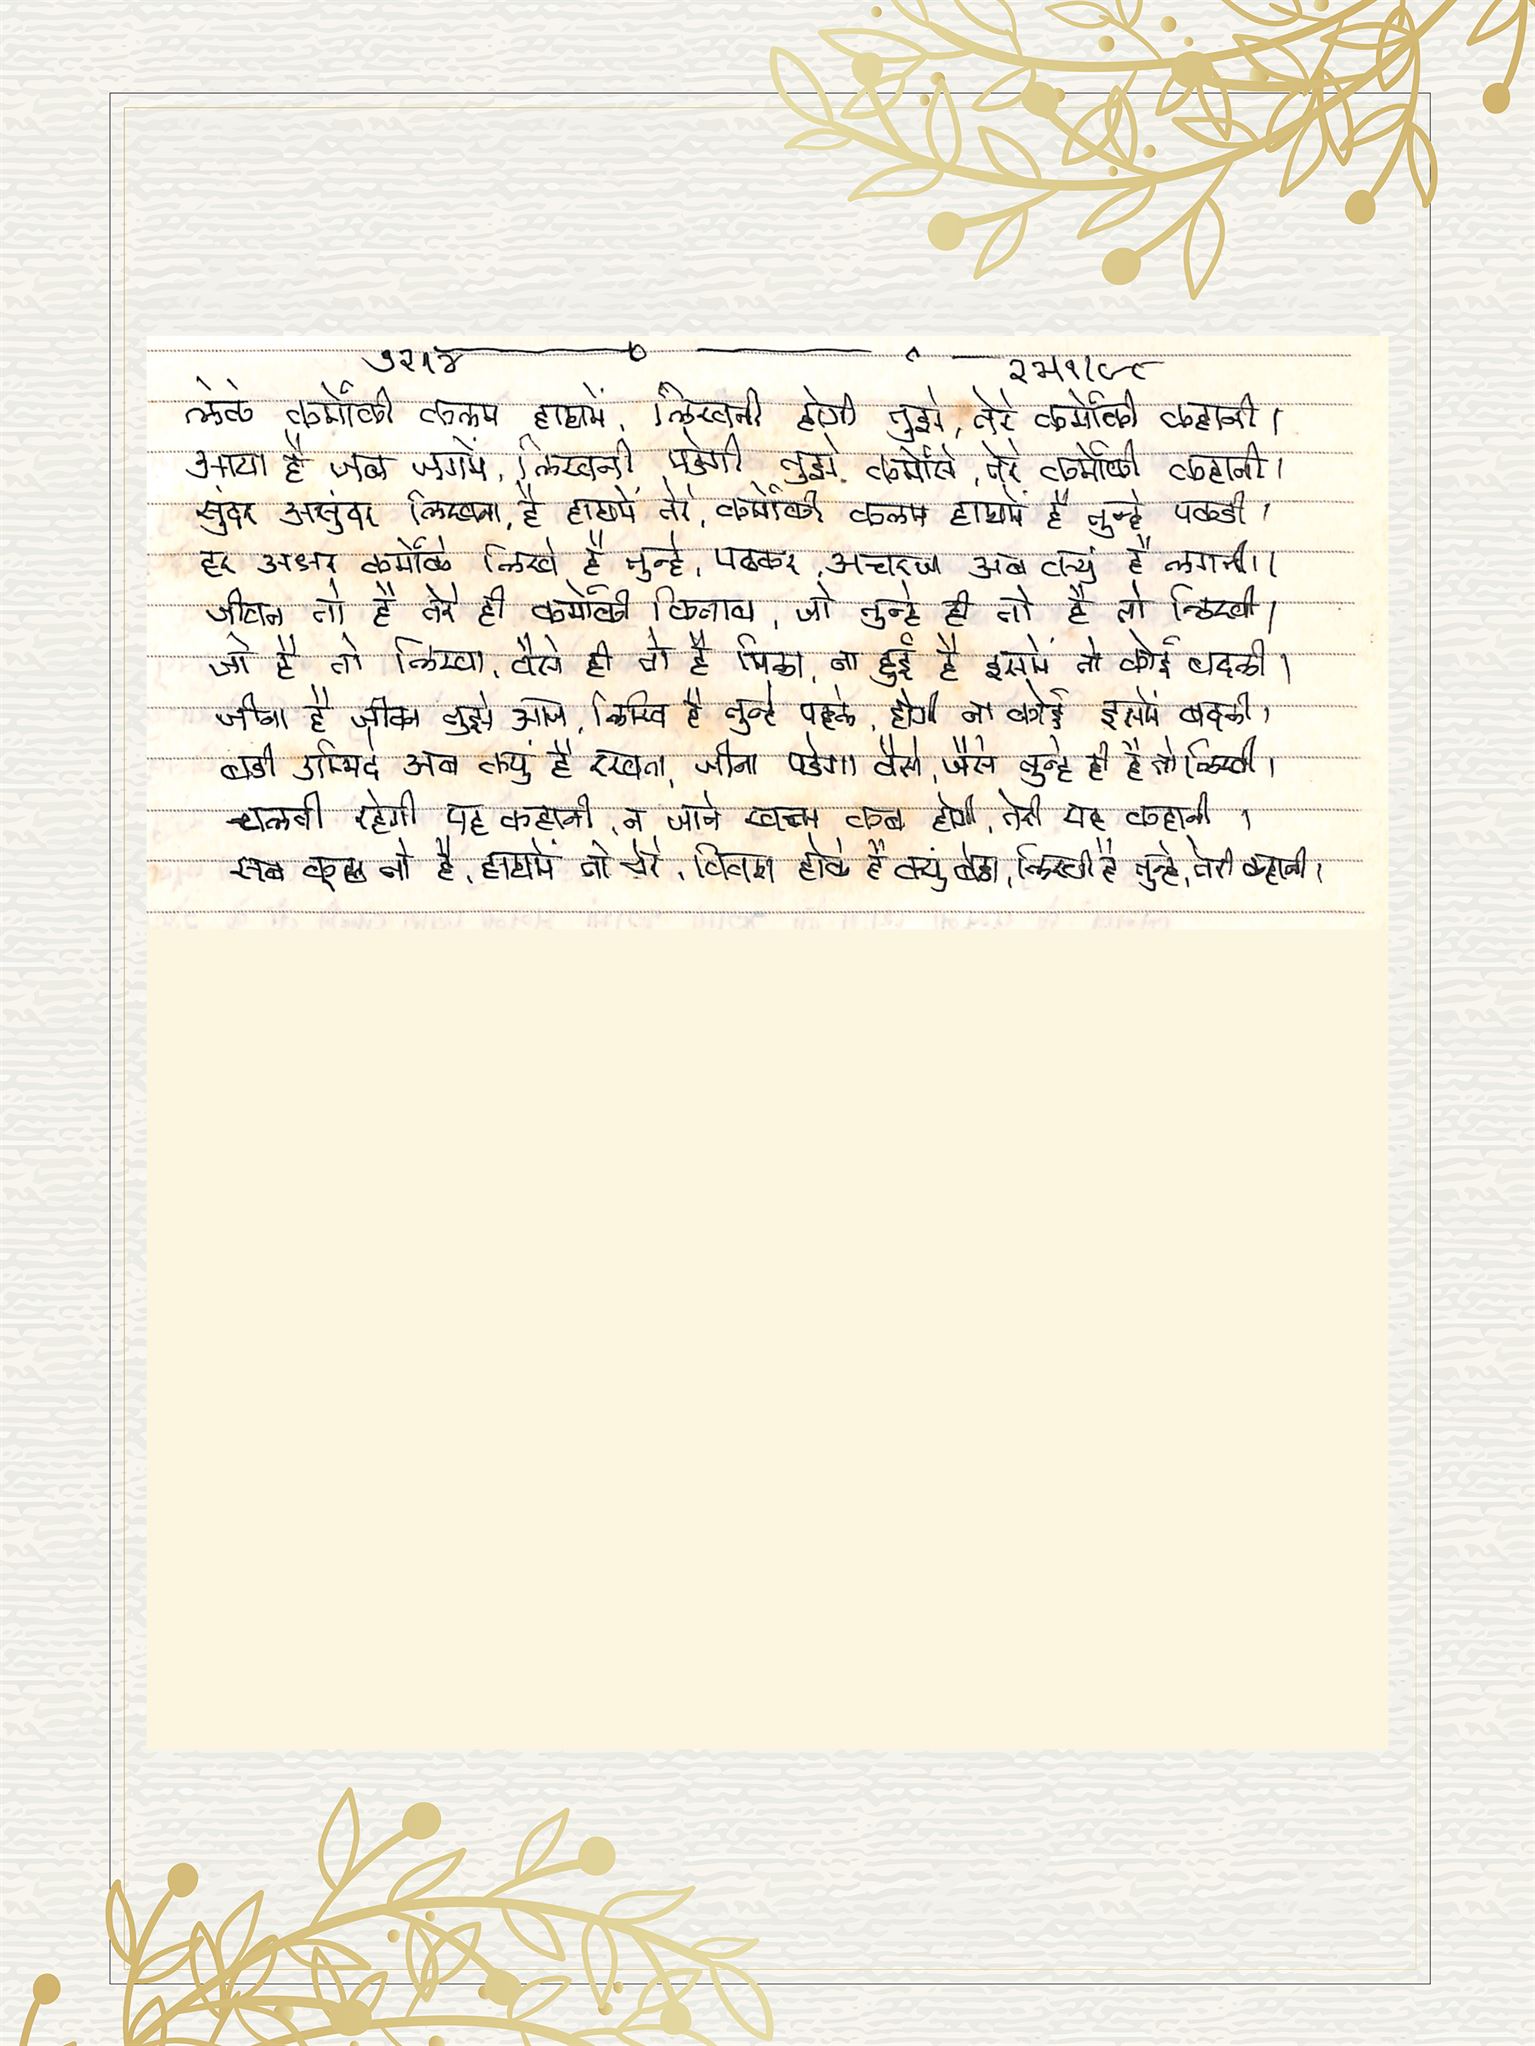 ७२१४ २५१/८८
लेके कर्मोकी कलम हाथमें, लिखनी होगी तुझे, तेरे कर्मोकी कहानी।
आया है जब जगमें, लिखनी पडेगी तुझे कर्मोसे, तेरे कर्मोकी कहानी।
सुंदर असुंदर लिखना, है हाथमें तेरे, कर्मोकी कलम हाथमें है तुन्हे पकडी।
हर अक्षर कर्मोके लिखे है तुन्हे, पढकर, अचरज अब क्युं है लगती।।
जीवन तो है तेरे ही कर्मोकी किताब, जो तुन्हे ही तो है तो लिखी।
जो है तो लिखा, वैसे ही तो है मिला, ना हुई है इसमें तो कोई बदली।
जीना है जीवन तुझे आज, लिखि है तुन्हे पहले, होगी ना कोई इसमें बदली।
बडी उम्मिदे अब क्युं है रखता, जीना पडेगा वैसे, जैसे तुन्हे ही है तो लिखी।
चलती रहेगी यह कहानी, न जाने खत्म कब होगी, तेरी यह कहानी।
सब कुछ तो है, हाथमें तो तेरे, विवश होके है क्युं बैठा, लिखी है तुन्हे, तेरी कहानी।